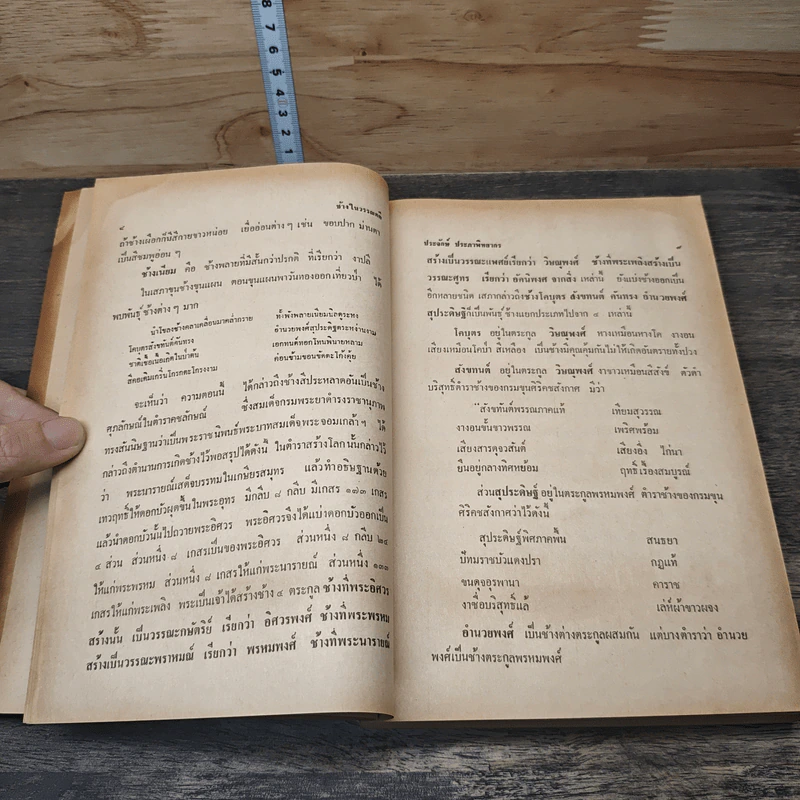 8 7 6 5 4 3 2 1
๘
ช้างในวรรณคดี
ถ้าช้างเผือกก็มีสีกายขาวหน่อย เยื่ออ่อนต่างๆ เช่น ขอบปาก ม่านตา
เป็นสีชมพูอ่อน ๆ
ช้างเนียม คือ ช้างพลายที่มีสั้นกว่าปรกติ ที่เรียกว่า งาปลี
ในเสภาขุนช้างขุนแผน ตอนขุนแผนพาวันทองออกเที่ยวป่า ได้
พบพันธุ์ช้างต่าง ๆ มาก
น้ำไขลงช้างคลาเคลื่อนมาคล่ำกราย
ทั้งพังพลายเนียมนิลดูระหง
โคบุตรสังขทันต์คันทรง
อำนวยพงศ์สุประดิษฐ์ดูทรงงาม
ชาติเชื้อเนื้อเกิดในป่าต้น
เอกทนต์ทอกโทนพินายหลาม
สีดอเดิมเกริ่นโกรกตะโกรงงาม
ค่อนข้ามขอนขัดตะโก้งคุ้ย
จะเห็นว่า ความตอนนี้ ได้กล่าวถึงช้างสีประหลาดอันเป็นช้าง
ศุภลักษณ์ในตำราคชลักษณ์ ซึ่งสมเด็จกรมพระยาดำรงราชานุภาพ
ทรงสันนิษฐานว่าเป็นพระราชนิพนธ์พระบาทสมเด็จพระจอมเกล้าฯ ได้
กล่าวถึงตำนานการเกิดช้างไว้พอสรุปได้ดังนี้ ในตำราสร้างโลกนั้นกล่าวไว้
ว่า พระนารายณ์เสด็จบรรทมในเกษียรสมุทร แล้วทำอธิษฐานด้วย
เทวฤทธิ์ให้ดอกบัวผุดขึ้นในพระอุทร มีกลีบ ๘ กลีบ มีเกสร ๑๗๓ เกสร
แล้วนำดอกบัวนั้นไปถวายพระอิศวร พระอิศวรจึงได้แบ่งดอกบัวออกเป็น
๔ ส่วน ส่วนหนึ่ง ๘ เกสรเป็นของพระอิศวร ส่วนหนึ่ง ๘ กลีบ ๒๔
ให้แก่พระพรหม ส่วนหนึ่ง ๘ เกสรให้แก่พระนารายณ์ ส่วนหนึ่ง ๑๓๓
เกสรให้แก่พระเพลิง พระเป็นเจ้าได้สร้างช้าง ๔ ตระกูล ช้างที่พระอิศวร
สร้างนั้น เป็นวรรณะกษัตริย์ เรียกว่า อิศวรพงศ์ ช้างที่พระพรหม
สร้างเป็นวรรณะพราหมณ์ เรียกว่า พรหมพงศ์ ช้างที่พระนารายณ์
ประจักษ์ ประภาพิทยากร
๙
สร้างเป็นวรรณะแพศย์เรียกว่า วิษณุพงศ์ ช้างที่พระเพลิงสร้างเป็น
วรรณะศูทร เรียกว่า อัคนิพงศ์ จากสิ่งเหล่านี้ ยังแบ่งช้างออกเป็น
อีกหลายชนิด เสภากล่าวถึงช้างโคบุตร สังขทนต์ คันทรง อำนวยพงศ์
สุประดิษฐ์ก็เป็นพันธุ์ช้างแยกประเภทไปจาก ๔ เหล่านั้น
โคบุตร อยู่ในตระกูล วิษณุพงศ์ หางเหมือนหางโค งางอน
เสียงเหมือนโคป่า สีเหลือง เป็นช้างมีคุณคุ้มกันไม่ให้เกิดอันตรายทั้งปวง
สังขทนต์ อยู่ในตระกูล วิษณุพงศ์ งาขาวเหมือนสีสังข์ ตัวดำ
บริสุทธิ์ตำราช้างของกรมขุนศิริคชสังกาศ มีว่า
"สังขทันต์พรรณภาคแท้ เทียมสุวรรณ
งางอนขั้นขาวพรรณ เพริศพร้อม
เสียงสารดุจวสันต์ เสียงอิง ไก่นา
ยืนอยู่กลางทิศหย้อม ฤทธิ์เรืองสมบูรณ์
ส่วนสุประดิษฐ์ อยู่ในตระกูลพรหมพงศ์ ตำราช้างของกรมขุน
ศิริคชสังกาศว่าไว้ดังนี้
สุประดิษฐ์พิศภาคพื้น สนธยา
ปัทมราชบัวแดงปรา กฏแท้
ขนดุจอรพานา คาราช
งาช่อบริสุทธิ์แล้ เล่ห์ผ้าขาวผจง
อำนวยพงศ์ เป็นช้างต่างตระกูลผสมกัน แต่บางตำราว่า อำนวย
พงศ์เป็นช้างตระกูลพรหมพงศ์